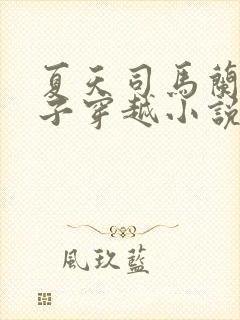 夏天司馬蘭
子穿越小說
風玖藍